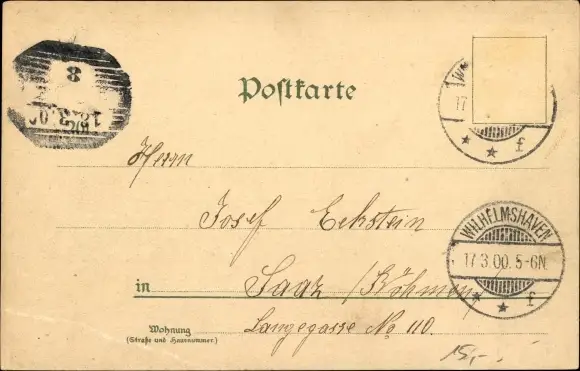 Postkarte
8
Herrn
Josef Eckstein
in Saaz /Böhmen/
Wohnung
(Straße und Hausnummer.)
Langegasse No 110
WILHELMSHAVEN
17.3.00.5-6N.
* * f
17
* * f
15,-.